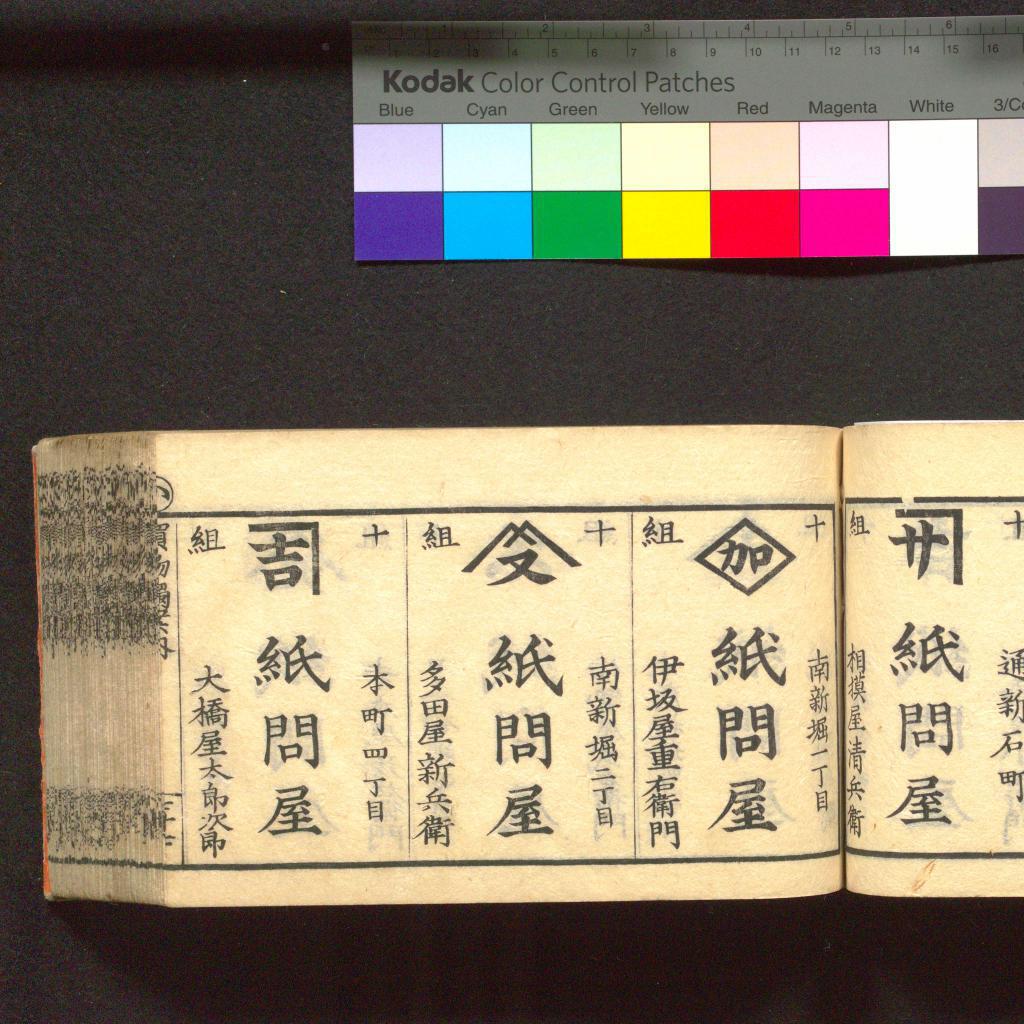 Kodak Color Control Patches
Blue Cyan Green Yellow Red Magenta White
1 2 3 4 5 6
1 2 3 4 5 6 7 8 9 10 11 12 13 14 15 16
十
通新石町
紙問屋
組
相摸屋清兵衛
十
南新堀一丁目
加
紙問屋
組
伊坂屋重右衛門
十
南新堀二丁目
紙問屋
組
多田屋新兵衛
十
本町四丁目
吉
紙問屋
組
大橋屋太郎次郎